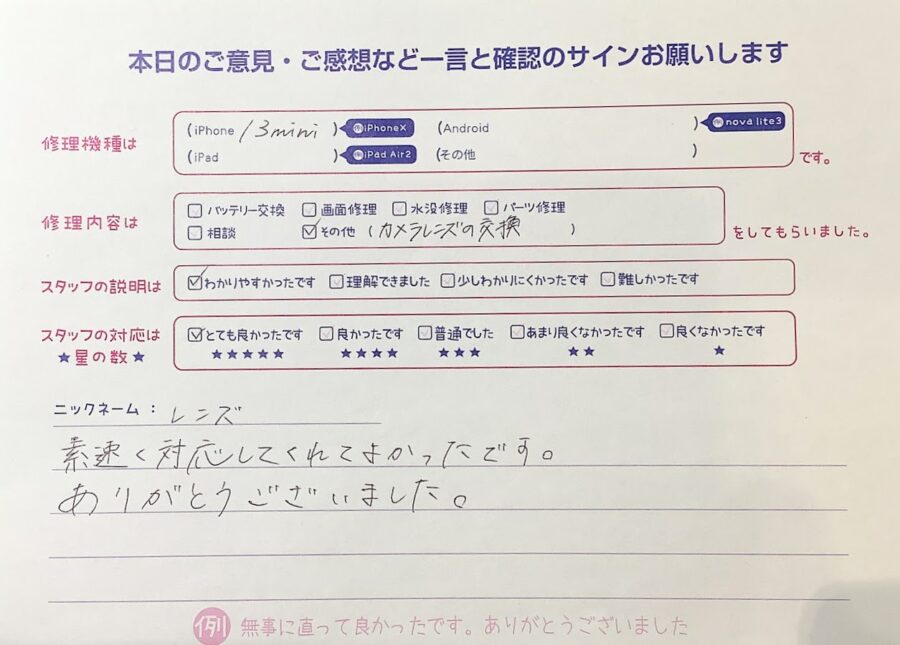 本日のご意見・ご感想など一言と確認のサインお願いします
修理機種は
(iPhone 13mini ) 例iPhoneX (Android ) 例nova lite3
(iPad ) 例iPad Air2 (その他 ) です。
修理内容は
バッテリー交換 画面修理 水没修理 パーツ修理
相談 その他 (カメラレンズの交換 ) をしてもらいました。
スタッフの説明は わかりやすかったです 理解できました 少しわかりにくかったです 難しかったです
スタッフの対応は とても良かったです 良かったです 普通でした あまり良くなかったです 良くなかったです
★星の数★ ★★★★★ ★★★★ ★★★ ★★ ★
ニックネーム: レンズ
素速く対応してくれてよかったです。
ありがとうございました。
例 無事に直って良かったです。ありがとうございました